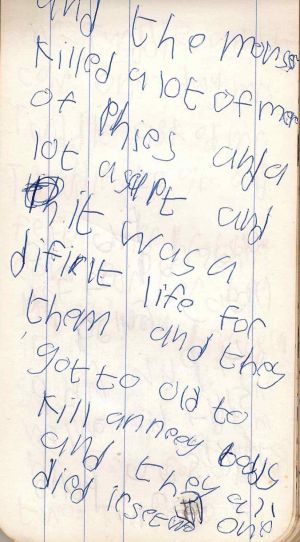 and the
killed a lot of men
of phies and a
lot asapt and
it was a
difirlt life for
them and they
got to old to
kill anneey bodys
and they all
died insetead one